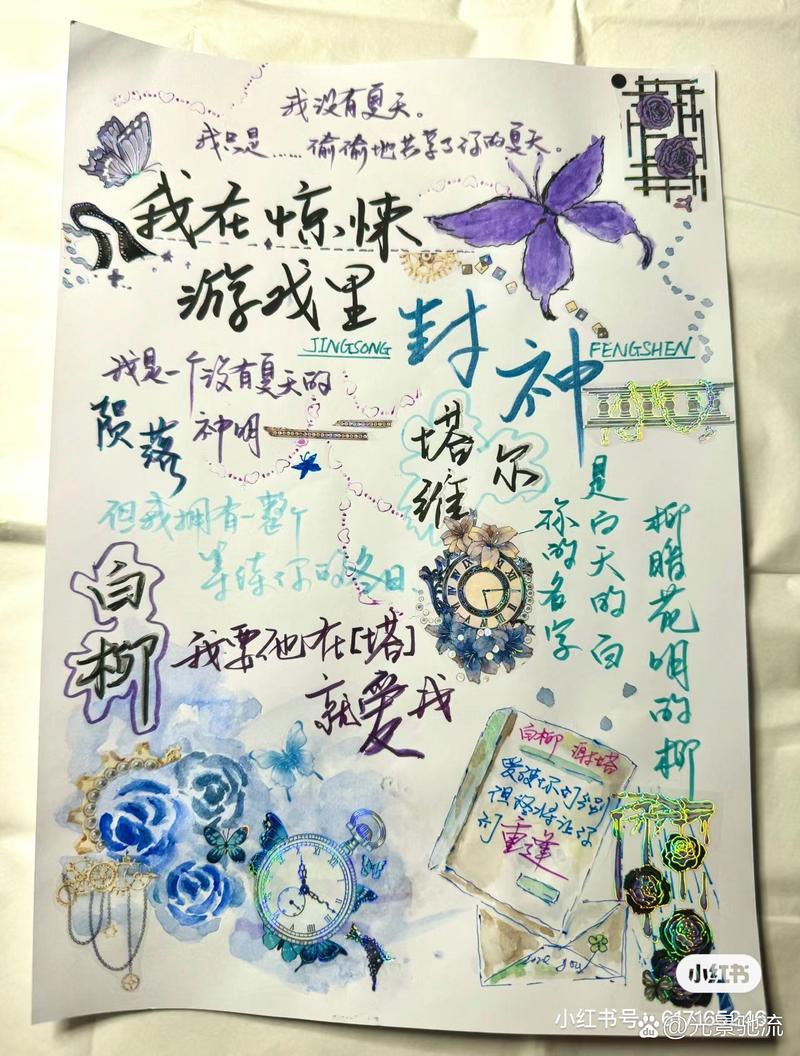 我没有夏天。
我只是……偷偷地共享了你的夏天。
我在惊悚
游戏里
封神
JINGSONG
FENGSHEN
我是一个没有夏天的
陨落神明
塔维尔
但我拥有一整个
等待你的冬日.
白柳
我要他在[塔]
就爱我
柳暗花明的柳
是白天的白
你的名字
白柳 谢塔
爱没
但终将让
重逢
love you
小红书
小红书号：617165246
@光景驰流